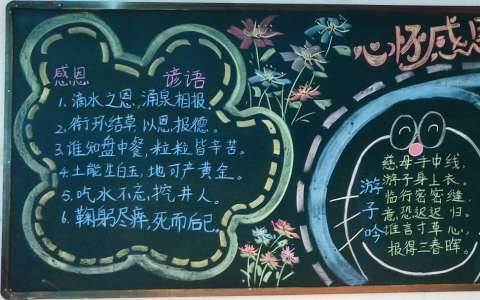 心怀感恩
感恩 谚语
1.滴水之恩,涌泉相报.
2.衔环结草,以恩报德。
3.谁知盘中餐,粒粒皆辛苦。
4.土能生白玉,地可产黄金。
5.吃水不忘,挖井人。
6.鞠躬尽瘁,死而后已。
游子吟
慈母手中线,
游子身上衣。
临行密密缝,
意恐迟迟归。
谁言寸草心,
报得三春晖。